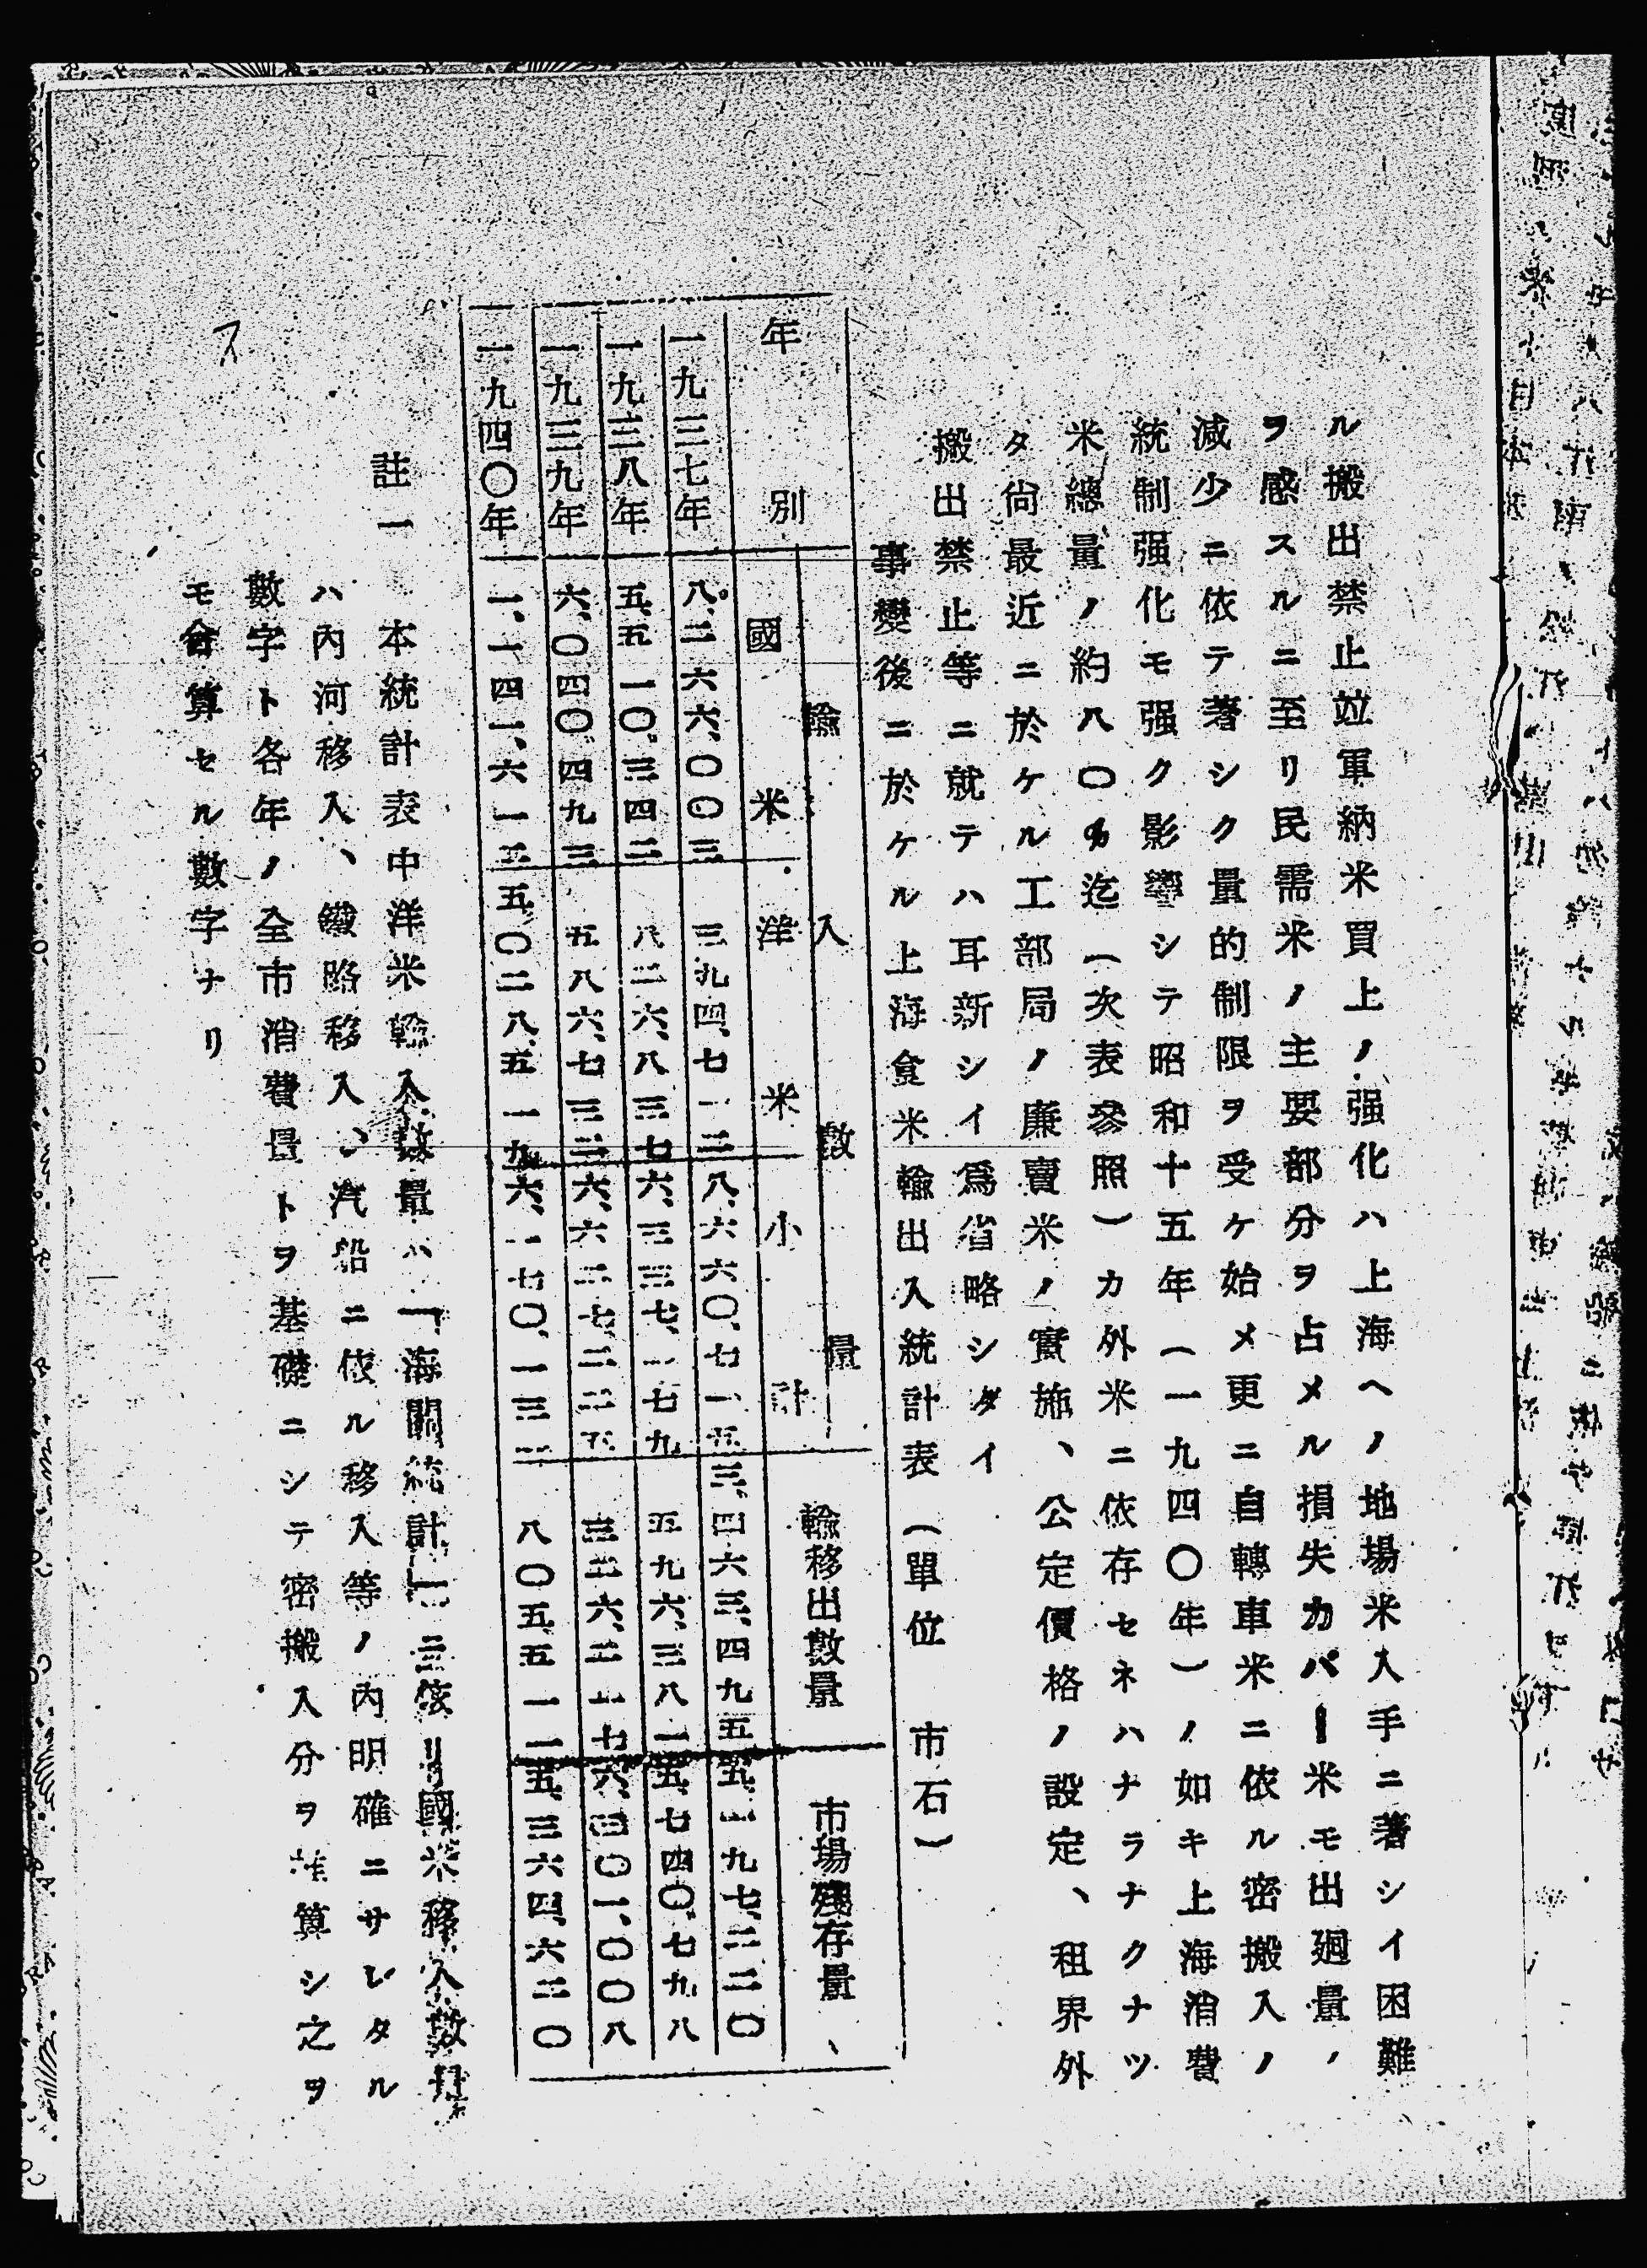 ル搬出禁止竝軍納米買上ノ强化ハ上海ヘノ地場米入手ニ著シイ困難
ヲ感スルニ至リ民需米ノ主要部分ヲ占メル損失カバー米モ出廻量ノ
減少ニ依テ著シク量的制限ヲ受ケ始メ更ニ自轉車米ニ依ル密搬入ノ
統制强化モ强ク影響シテ昭和十五年(一九四〇年)ノ如キ上海消費
米總量ノ約八〇%迄(次表參照)カ外米ニ依存セネハナラナクナツ
タ尙最近ニ於ケル工部局ノ廉賣米ノ實施、公定價格ノ設定、租界外
搬出禁止等ニ就テハ耳新シイ爲省略シタイ
事變後ニ於ケル上海食米輸出入統計表(單位 市石)
年別
輸入數量
國米
洋米
小計
輸移出數量
市場殘存量
一九三七年 八、二六六、〇〇三 三九四、七一二 八、六六〇、七一五 三、四六三、四九五 五、一九七、二二〇
一九三八年 五、五一〇、三四二 八二六、八三七 六、三三七、一七九 五九六、三八一 五、七四〇、七九八
一九三九年 六、〇四〇、四九三 五八六、七三二 六、六二七、二二五 三二六、二一七 六、三〇一、〇〇八
一九四〇年 一、一四一、六一三 五、〇二八、五一九 六、一七〇、一三二 八〇五、五一二 五、三六四、六二〇
註一 本統計表中洋米輸入數量ハ「海關統計」ニ依リ國米移入數量
ハ內河移入、鐵路移入、汽船ニ依ル移入等ノ內明確ニサレタル
數字ト各年ノ全市消費量トヲ基礎ニシテ密搬入分ヲ推算シ之ヲ
モ會算セル數字ナリ